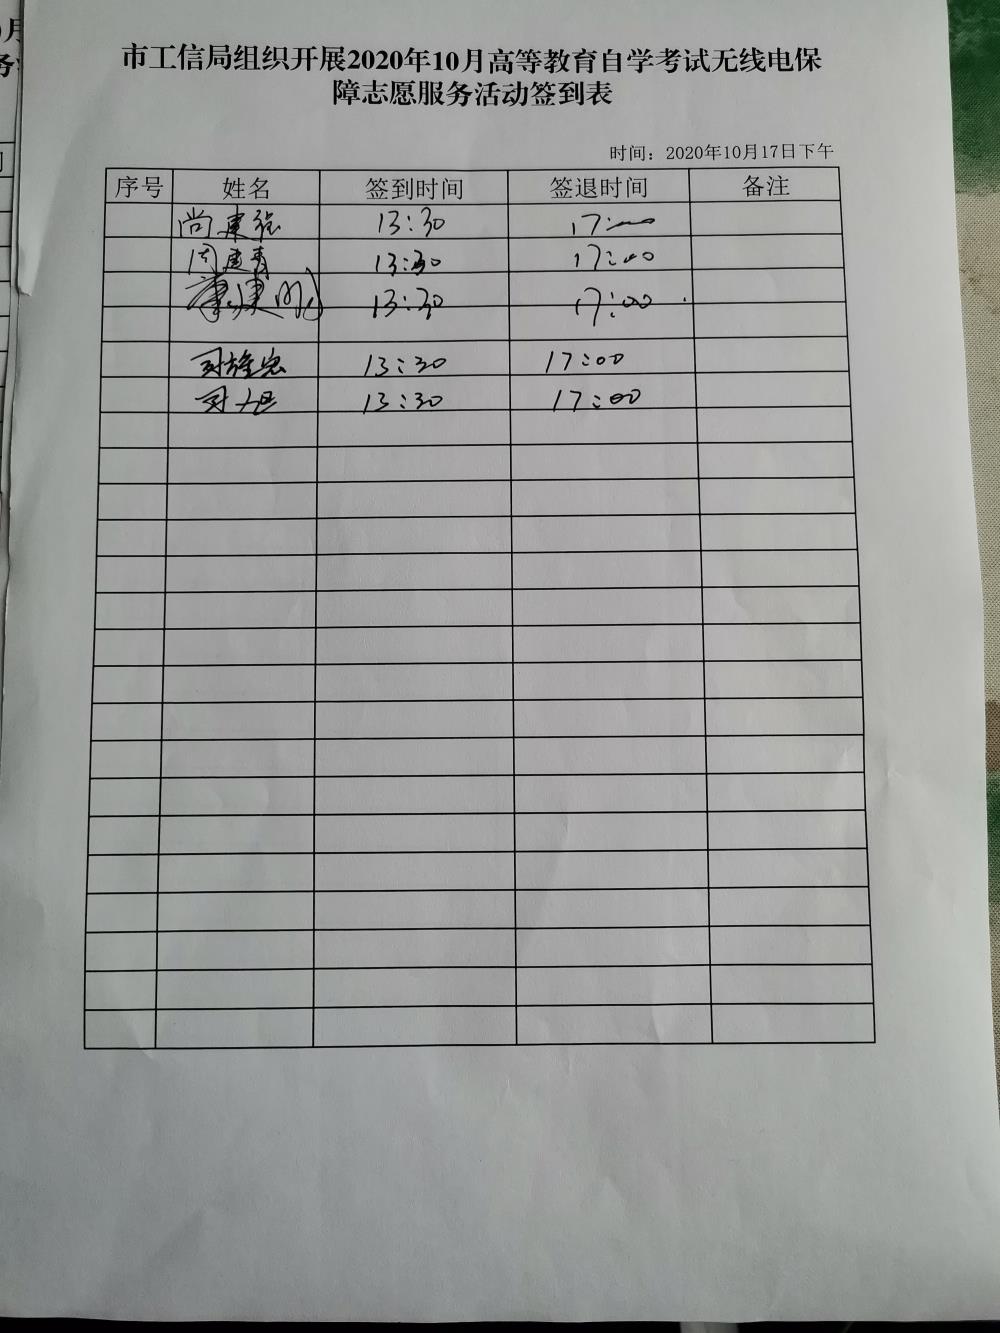 市工信局组织开展2020年10月高等教育自学考试无线电保
障志愿服务活动签到表
时间：2020年10月17日下午
序号 姓名 签到时间 签退时间 备注
尚建强 13:30 17:00
周建青 13:30 17:00
康建明 13:30 17:00
13:30 17:00
13:30 17:00